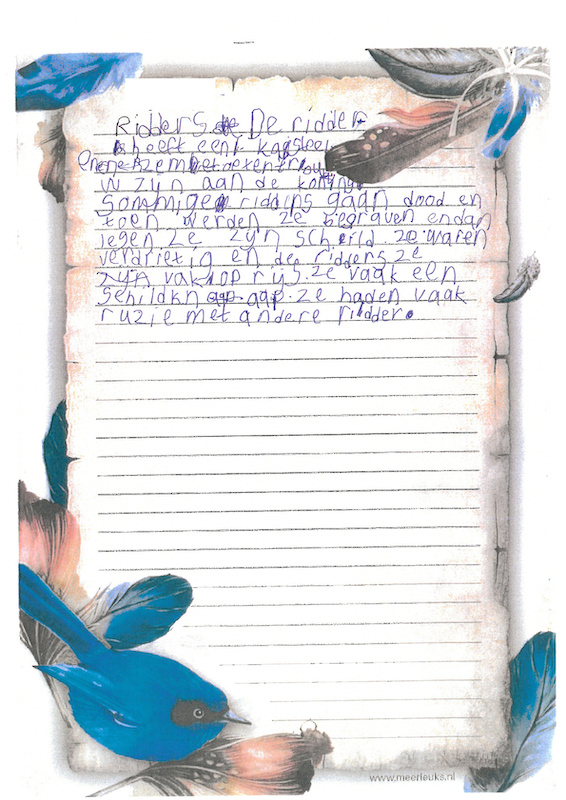 Ridders. De ridder
heeft een kasteel.
en een zwem
zijn aan de koning
Sommige ridders gaan dood en
toen werden ze begraven en dan
legen ze zijn schild. ze waren
verdrietig en de ridders ze
zijn vak op rijs. ze vaak een
schildkn aap. ze haden vaak
ruzie met andere ridder.
www.meerleuks.nl